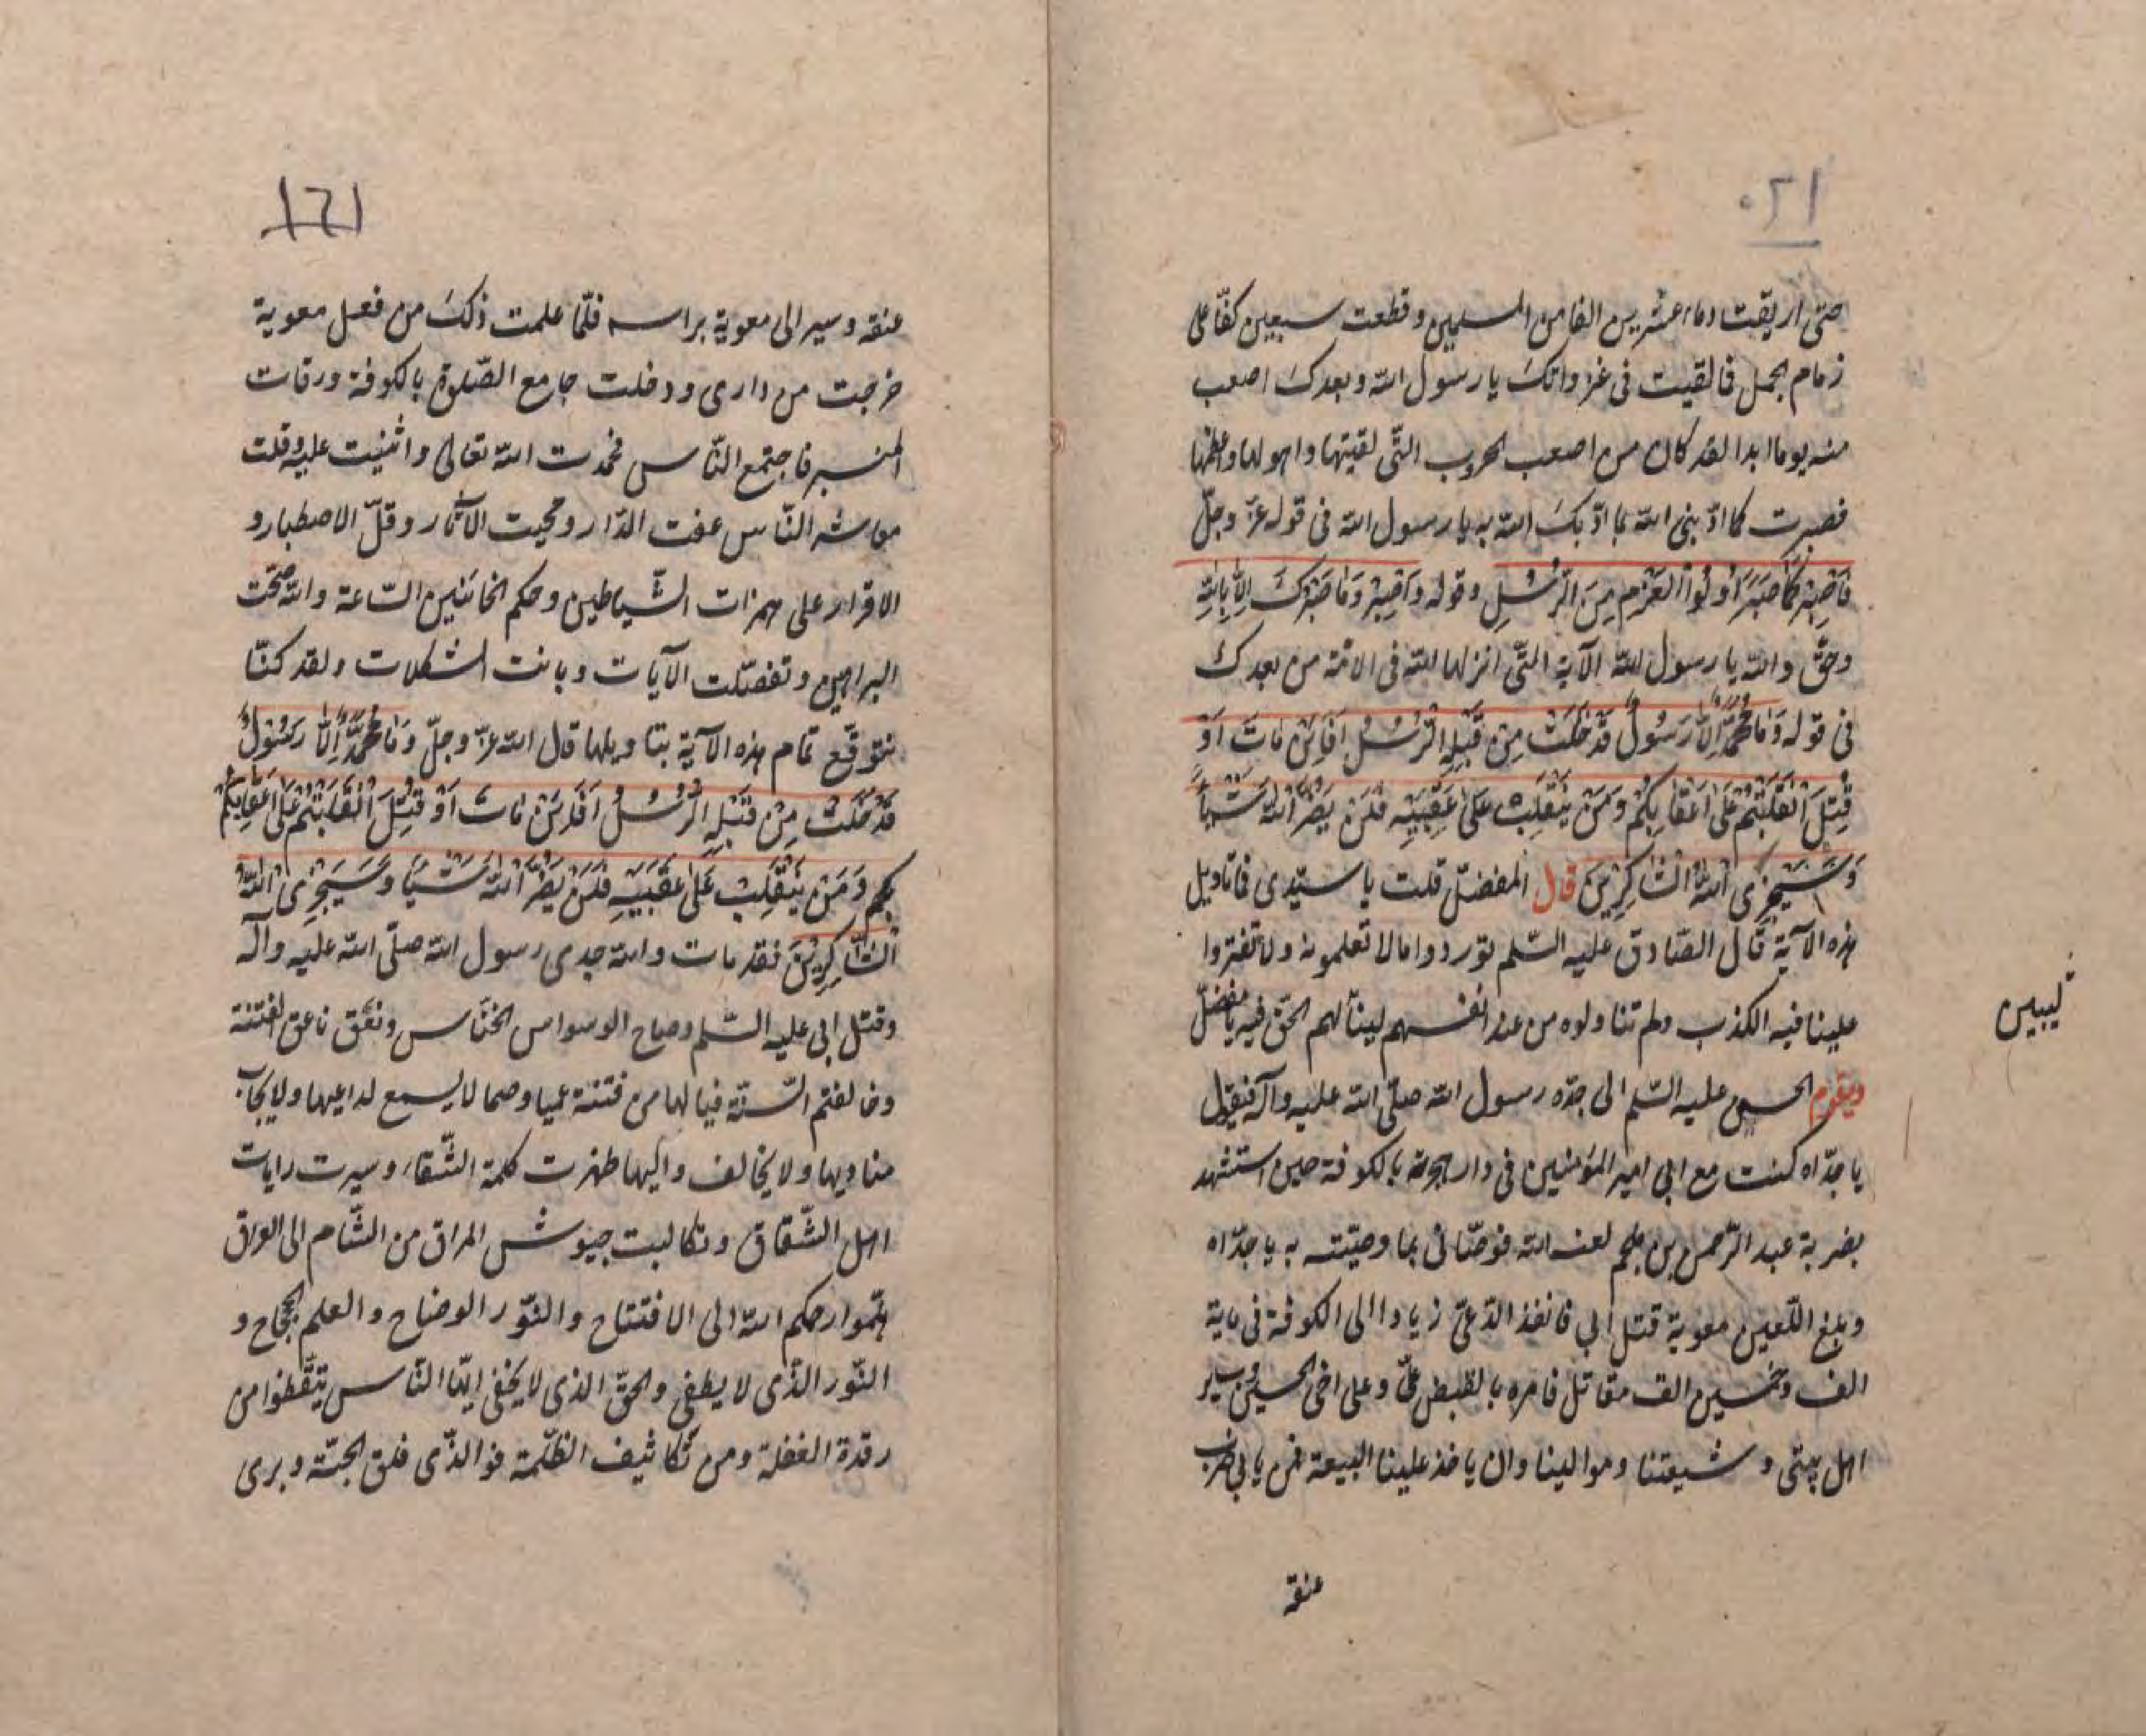 ١٢٠
حتى اريقت دماء عشرين الفا من المسلمين وقطعت سبعين كفّا على
زمام الجمل فما لقيت فى غزواتك يا رسول الله وبعدك اصعب
منه يوما ابدا لقد كان من اصعب الحروب التّى لقيتها واهولها واعظمها
فصبرت كما ادّبنى الله بما ادّبك الله به يا رسول الله فى قوله عزّ وجلّ
فَاصْبِرْ كَمَا صَبَرَ اُولُوا الْعَزْمِ مِنَ الرُّسُلِ وقوله وَاصْبِرْ وَمَا صَبْرُكَ اِلَّا بِاللهِ
وحقّ والله يا رسول الله الآية التّى انزلها الله فى الامّة من بعدك
فى قوله وَمَا مُحَمَّدٌ اِلَّا رَسُولٌ قَدْ خَلَتْ مِنْ قَبْلِهِ الرُّسُلُ اَفَاِنْ مَاتَ اَوْ
قُتِلَ انْقَلَبْتُمْ عَلَى اَعْقَابِكُمْ وَمَنْ يَنْقَلِبْ عَلَى عَقِبَيْهِ فَلَنْ يَضُرَّ اللهَ شَيْئًا
وَسَيَجْزِى اللهُ الشَّاكِرِينَ قال المفضّل قلت يا سيّدى فما تاويل
هذه الآية قال الصّادق عليه السّلم تورد واما لا تعلمونه ولا تفتروا
علينا فيه الكذب ولم تتناولوه من عند انفسهم لينا لهم الحقّ فيه يا مفضّل
ليبين
ويقوم الحسن عليه السّلم الى جدّه رسول الله صلّى الله عليه وآله فيقول
يا جدّاه كنت مع ابى امير المؤمنين فى دار هجرته بالكوفة حين استشهد
بضربة عبد الرّحمن بن ملجم لعنه الله فوصّانى بما وصيّته به يا جدّاه
وبلغ اللّعين معوية قتل ابى فانفذ الدّعىّ زيادا الى الكوفة فى ماية
الف وخمسين الف مقاتل فامره بالقبض علىّ وعلى اخى الحسين وساير
اهل بيتى وشيعتنا وموالينا وان ياخذ علينا البيعة فمن يابى ضرب
عنقه
١٢١
عنقه وسير الى معوية براسه فلمّا علمت ذلك من فعل معوية
خرجت من دارى ودخلت جامع الصّلوة بالكوفة ورقات
المنبر فاجتمع النّاس فحمدت الله تعالى واثنيت عليه وقلت
معاشر النّاس عفت الدّار ومحيت الآثار وقلّ الاصطبار و
الاقرار على همزات الشّياطين وحكم الخائنين السّاعة والله صحّت
البراهين وتفصّلت الآيات وبانت المشكلات ولقد كنّا
نتوقّع تمام هذه الآية بتاويلها قال الله عزّ وجلّ وَمَا مُحَمَّدٌ اِلَّا رَسُولٌ
قَدْ خَلَتْ مِنْ قَبْلِهِ الرُّسُلُ اَفَاِنْ مَاتَ اَوْ قُتِلَ انْقَلَبْتُمْ عَلَى اَعْقَابِكُمْ
بكم وَمَنْ يَنْقَلِبْ عَلَى عَقِبَيْهِ فَلَنْ يَضُرَّ اللهَ شَيْئًا وَسَيَجْزِى اللهُ
الشَّاكِرِينَ فقد مات والله جدى رسول الله صلّى الله عليه وآله
وقتل ابى عليه السّلم وصاح الوسواس الخنّاس ونعق ناعق الفتنة
وخالفتم السّنّة فيا لها من فتنة عميا وصما لا يسمع لداعيها ولا يجاب
مناديها ولا يخالف واليها ظهرت كلمة الشّقاء وسيرت رايات
اهل الشّقاق وتكالبت جيوش المراق من الشّام الى العراق
هلّموا رحمكم الله الى الافتتاح والنّور الوضاح والعلم الجحجاح و
النّور الذّى لا يطفى والحقّ الذى لا يخفى ايّها النّاس تيّقظوا من
رقدة الغفلة ومن تكاثيف الظّلمة فوالذّى فلق الحبّة وبرى